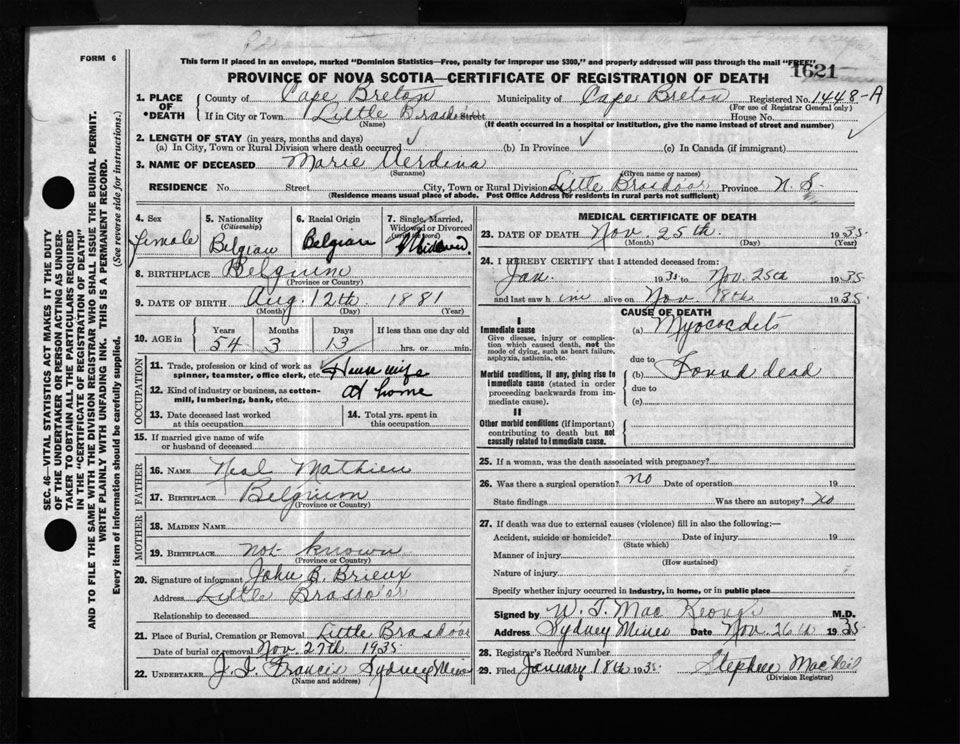 FORM 6
This form if placed in an envelope, marked "Dominion Statistics—Free, penalty for improper use $300," and properly addressed will pass through the mail "FREE"
1621
PROVINCE OF NOVA SCOTIA—CERTIFICATE OF REGISTRATION OF DEATH
SEC. 46—VITAL STATISTICS ACT MAKES IT THE DUTY
OF THE UNDERTAKER OR PERSON ACTING AS UNDER-
TAKER TO OBTAIN ALL THE PARTICULARS REQUIRED
IN THE "CERTIFICATE OF REGISTRATION OF DEATH"
AND TO FILE THE SAME WITH THE DIVISION REGISTRAR WHO SHALL ISSUE THE BURIAL PERMIT.
WRITE PLAINLY WITH UNFADING INK. THIS IS A PERMANENT RECORD.
Every item of information should be carefully supplied. (See reverse side for instructions.)
1. PLACE OF DEATH County of Cape Breton Municipality of Cape Breton Registered No. 1448-A
(For use of Registrar General only)
If in City or Town Little Street House No.
(Name) (If death occurred in a hospital or institution, give the name instead of street and number)
2. LENGTH OF STAY (in years, months and days)
(a) In City, Town or Rural Division where death occurred ✓ (b) In Province ✓ (c) In Canada (if immigrant) ✓
3. NAME OF DECEASED Marie
(Surname) (Given name or names)
RESIDENCE No. Street City, Town or Rural Division Little Province N. S.
(Residence means usual place of abode. Post Office Address for residents in rural parts not sufficient)
4. Sex female
5. Nationality (Citizenship) Belgian
6. Racial Origin Belgian
7. Single, Married, Widowed or Divorced (write the word) Widowed
8. BIRTHPLACE Belgium
(Province or Country)
9. DATE OF BIRTH Aug. 12th 1881
(Month) (Day) (Year)
10. AGE in Years 54 Months 3 Days 13 If less than one day old hrs. or min.
OCCUPATION
11. Trade, profession or kind of work as spinner, teamster, office clerk, etc. Housewife
12. Kind of industry or business, as cotton-mill, lumbering, bank, etc. at home
13. Date deceased last worked at this occupation
14. Total yrs. spent in this occupation
15. If married give name of wife or husband of deceased
FATHER
16. NAME Neal Mathieu
17. BIRTHPLACE Belgium
(Province or Country)
MOTHER
18. MAIDEN NAME
19. BIRTHPLACE not known
(Province or Country)
20. Signature of informant John B. Brieux
Address Little
Relationship to deceased
21. Place of Burial, Cremation or Removal Little
Date of burial or removal Nov. 27th 1935
22. UNDERTAKER J. J. Francis Sydney Mines
(Name and address)
MEDICAL CERTIFICATE OF DEATH
23. DATE OF DEATH Nov. 25th. 1935
(Month) (Day) (Year)
24. I HEREBY CERTIFY that I attended deceased from:
Jan. 1935 to Nov. 25th 1935
and last saw h im alive on Nov 18th 1935
CAUSE OF DEATH
I
Immediate cause
Give disease, injury or complication which caused death, not the mode of dying, such as heart failure, asphyxia, asthenia, etc.
(a) Myocarditis
due to
Morbid conditions, if any, giving rise to immediate cause (stated in order proceeding backwards from immediate cause).
(b) Found dead
due to
(c)
II
Other morbid conditions (if important) contributing to death but not causally related to immediate cause.
25. If a woman, was the death associated with pregnancy?
26. Was there a surgical operation? no Date of operation 19
State findings Was there an autopsy? no
27. If death was due to external causes (violence) fill in also the following:—
Accident, suicide or homicide? Date of injury 19
(State which)
Manner of injury
(How sustained)
Nature of injury
Specify whether injury occurred in industry, in home, or in public place
Signed by W. J. Mac Keough M.D.
Address Sydney Mines Date Nov. 26th 1935
28. Registrar's Record Number
29. Filed January 18th 1935 Stephen MacNeil
(Division Registrar)